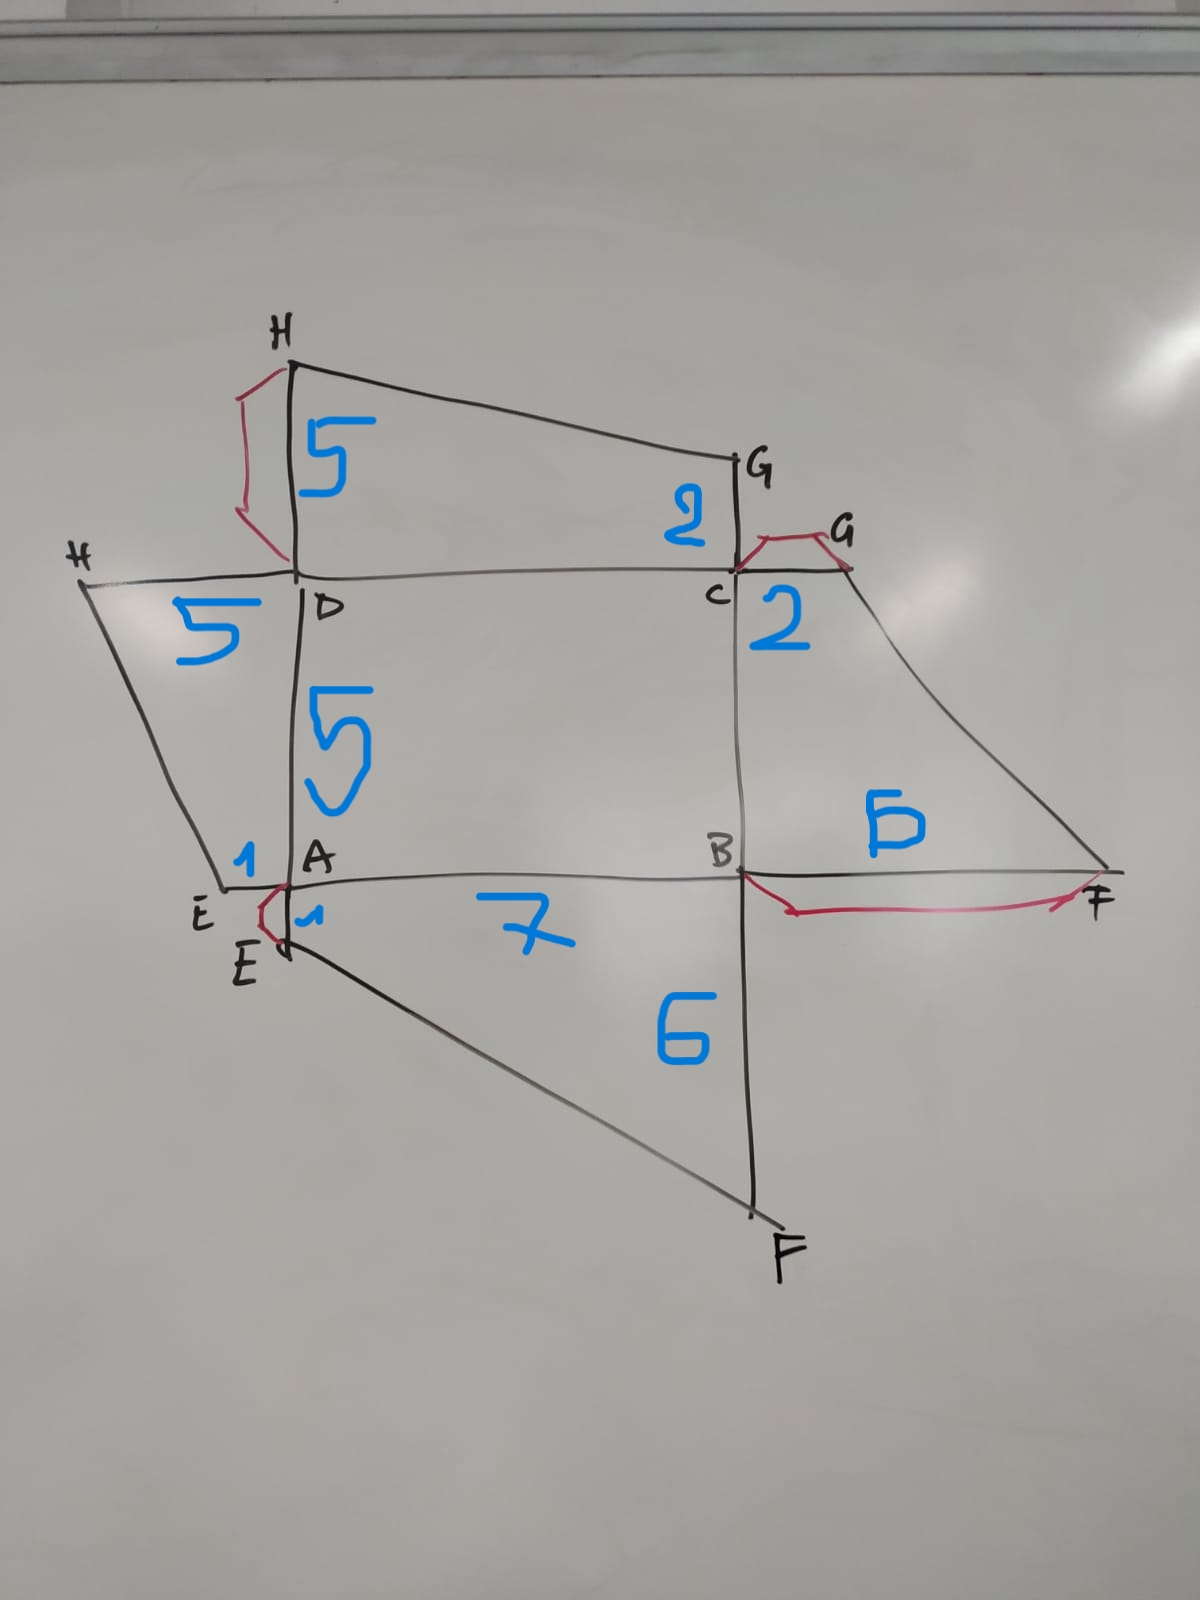 H
5
G
2
G
H
5
D
C
2
5
6
B
1
A
E
1
7
F
E
6
F